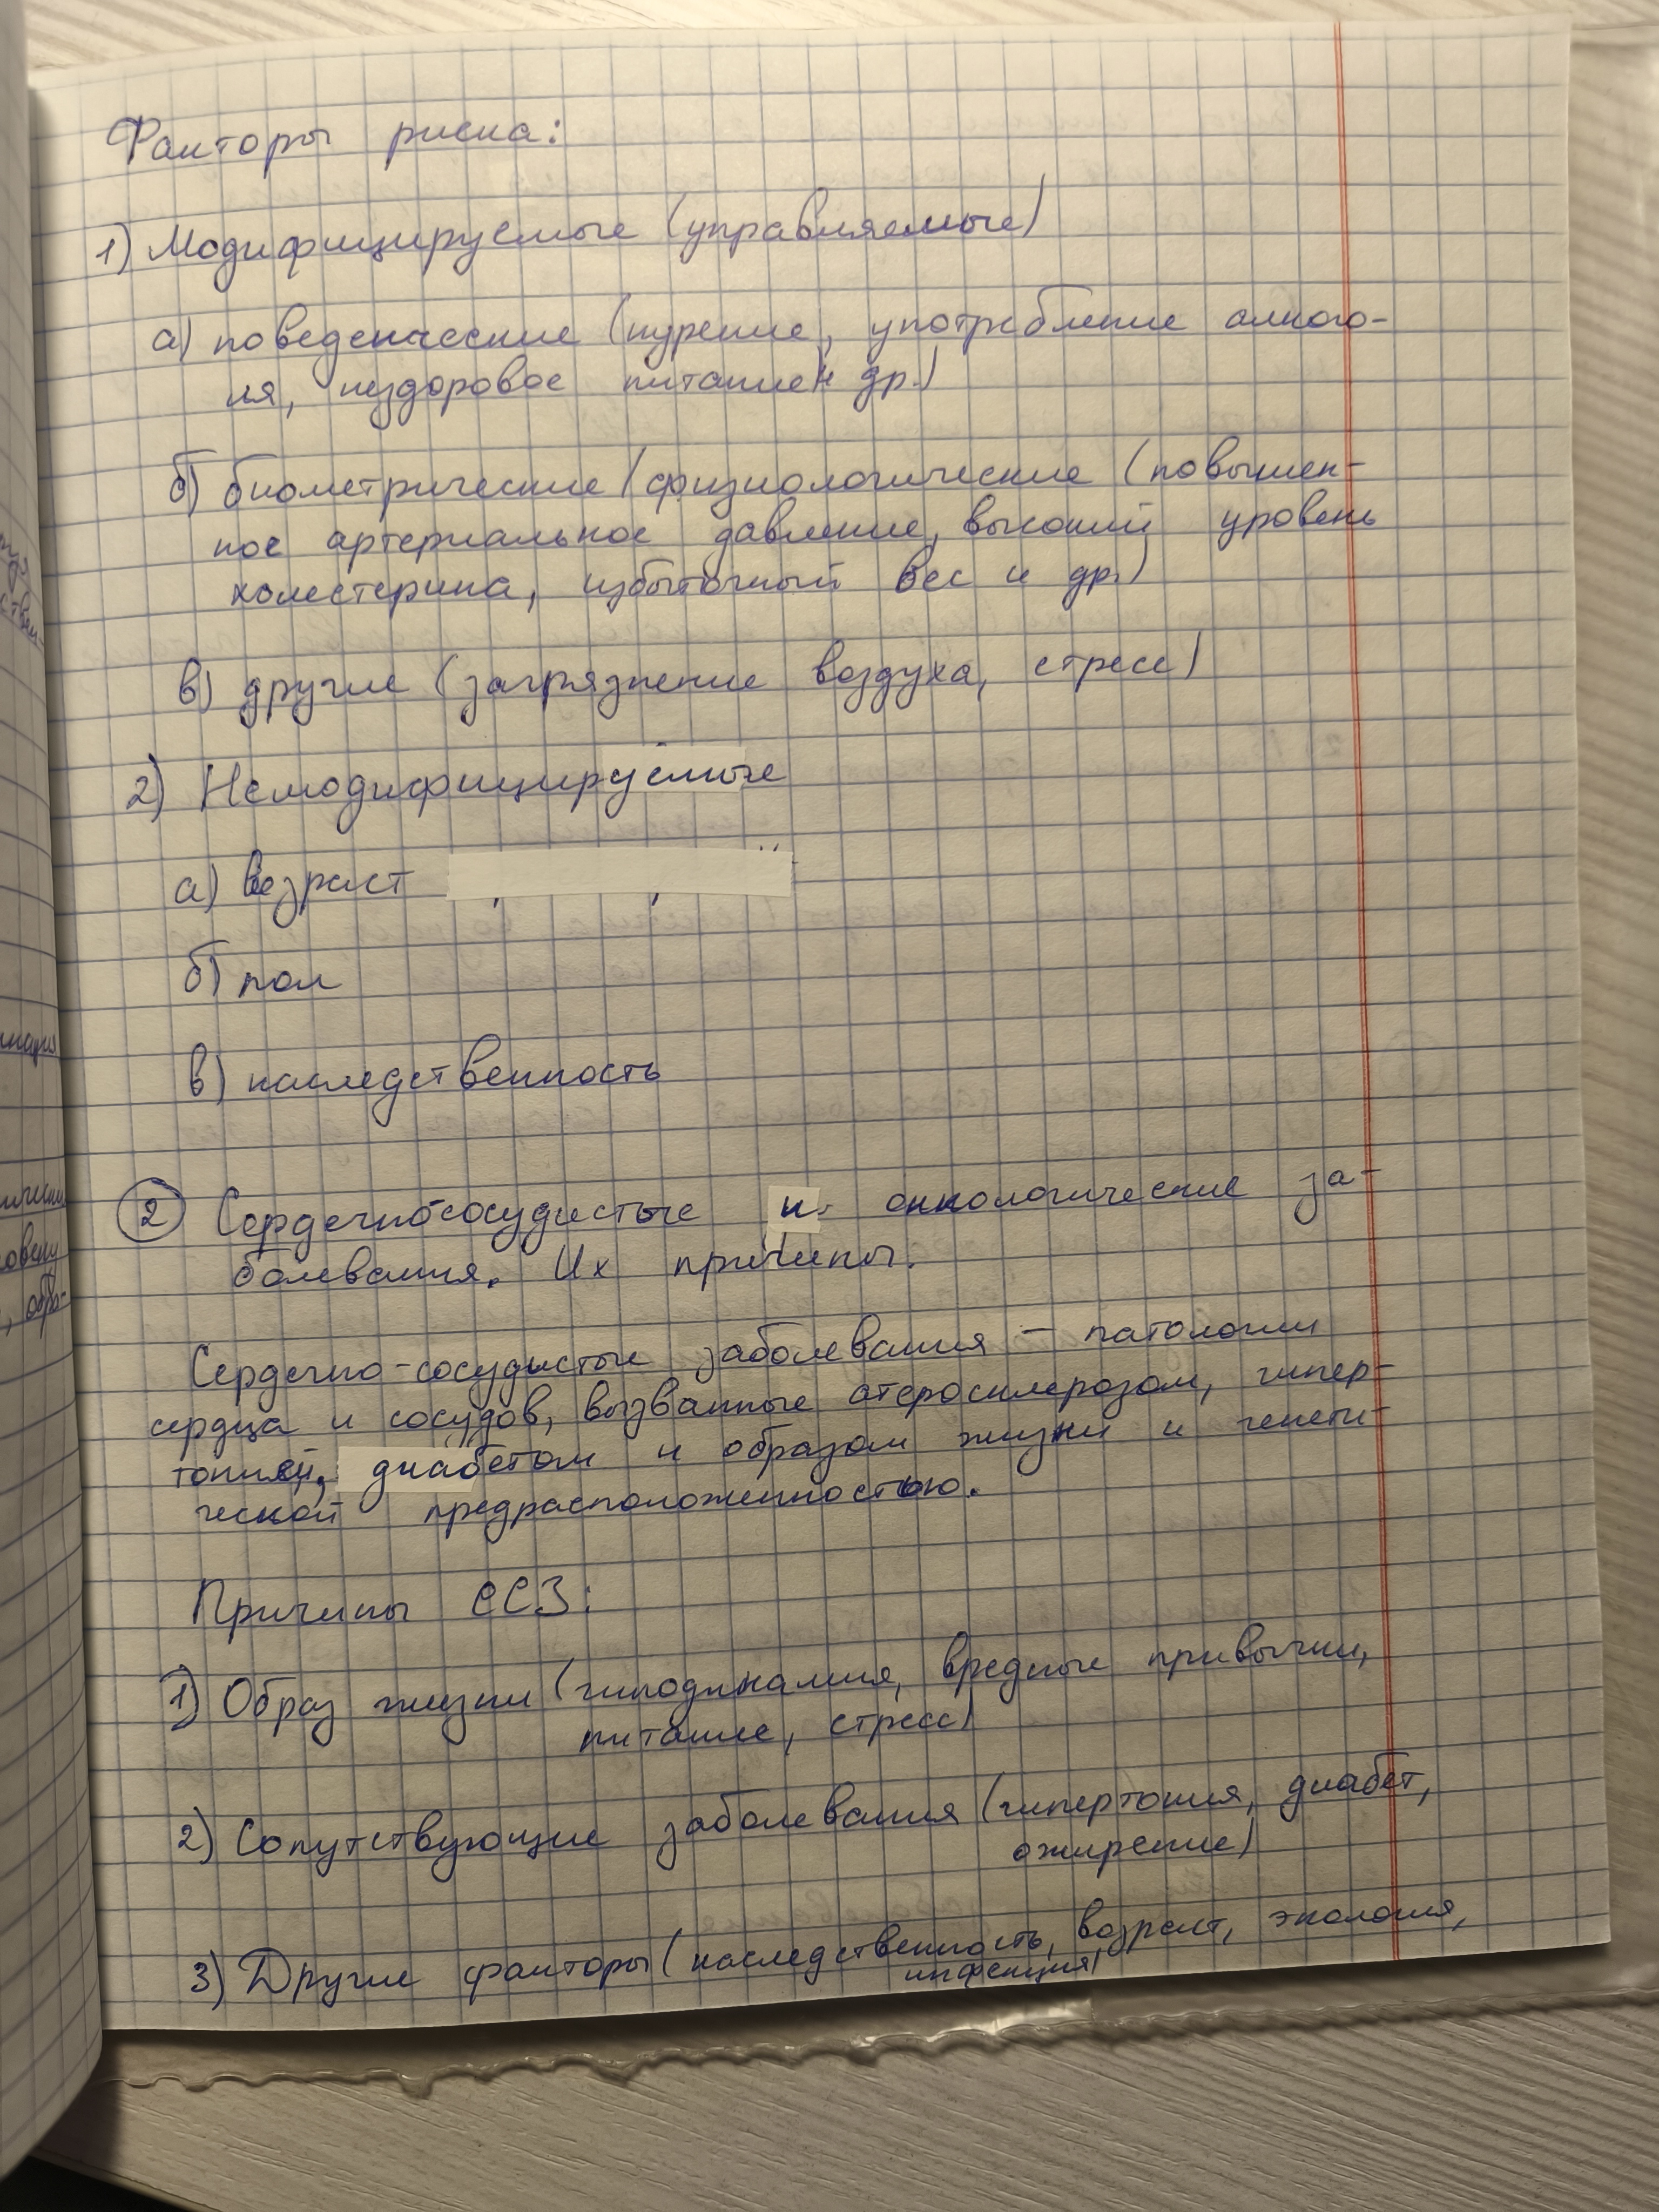 Факторы риска:
1) Модифицируемые (управляемые)
а) поведенческие (курение, употребление алкого-
ля, нездоровое питание и др.)
б) биометрические/физиологические (повышен-
ное артериальное давление, высокий уровень
холестерина, избыточный вес и др.)
в) другие (загрязнение воздуха, стресс)
2) Немодифицируемые
а) возраст
б) пол
в) наследственность
2 Сердечно-сосудистые и онкологические за-
болевания. Их причины.
Сердечно-сосудистые заболевания – патологии
сердца и сосудов, вызванные атеросклерозом, гипер-
тонией, диабетом и образом жизни и генети-
ческой предрасположенностью.
Причины ССЗ:
1) Образ жизни (гиподинамия, вредные привычки,
питание, стресс)
2) Сопутствующие заболевания (гипертония, диабет,
ожирение)
3) Другие факторы (наследственность, возраст, экология,
инфекция)